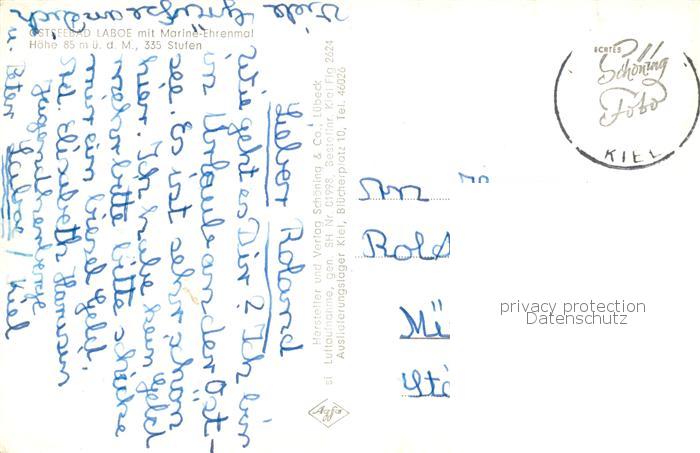 OSTSEEBAD LABOE mit Marine-Ehrenmal
Höhe 85 m ü. d. M., 335 Stufen
Lieber Roland
Wie geht es Dir? Ich bin
im Urlaub an der Ost-
see. Es ist sehr schön
hier. Ich habe kein Geld
mehr bitte bitte schicke
mir ein bissel Geld.
Elisabeth
Jugendherberge
/ Kiel
Viele Grüße an Dich
u. Peter
Hersteller und Verlag Schöning & Co., Lübeck
si Luftaufnahme, gen. SH Nr. 01998, Bestellnr. Kiel Flg 2624
Auslieferungslager Kiel, Blücherplatz 10, Tel. 46026
Agfa
ECHTES
Schöning
Foto
KIEL
An
Mü
privacy protection
Datenschutz